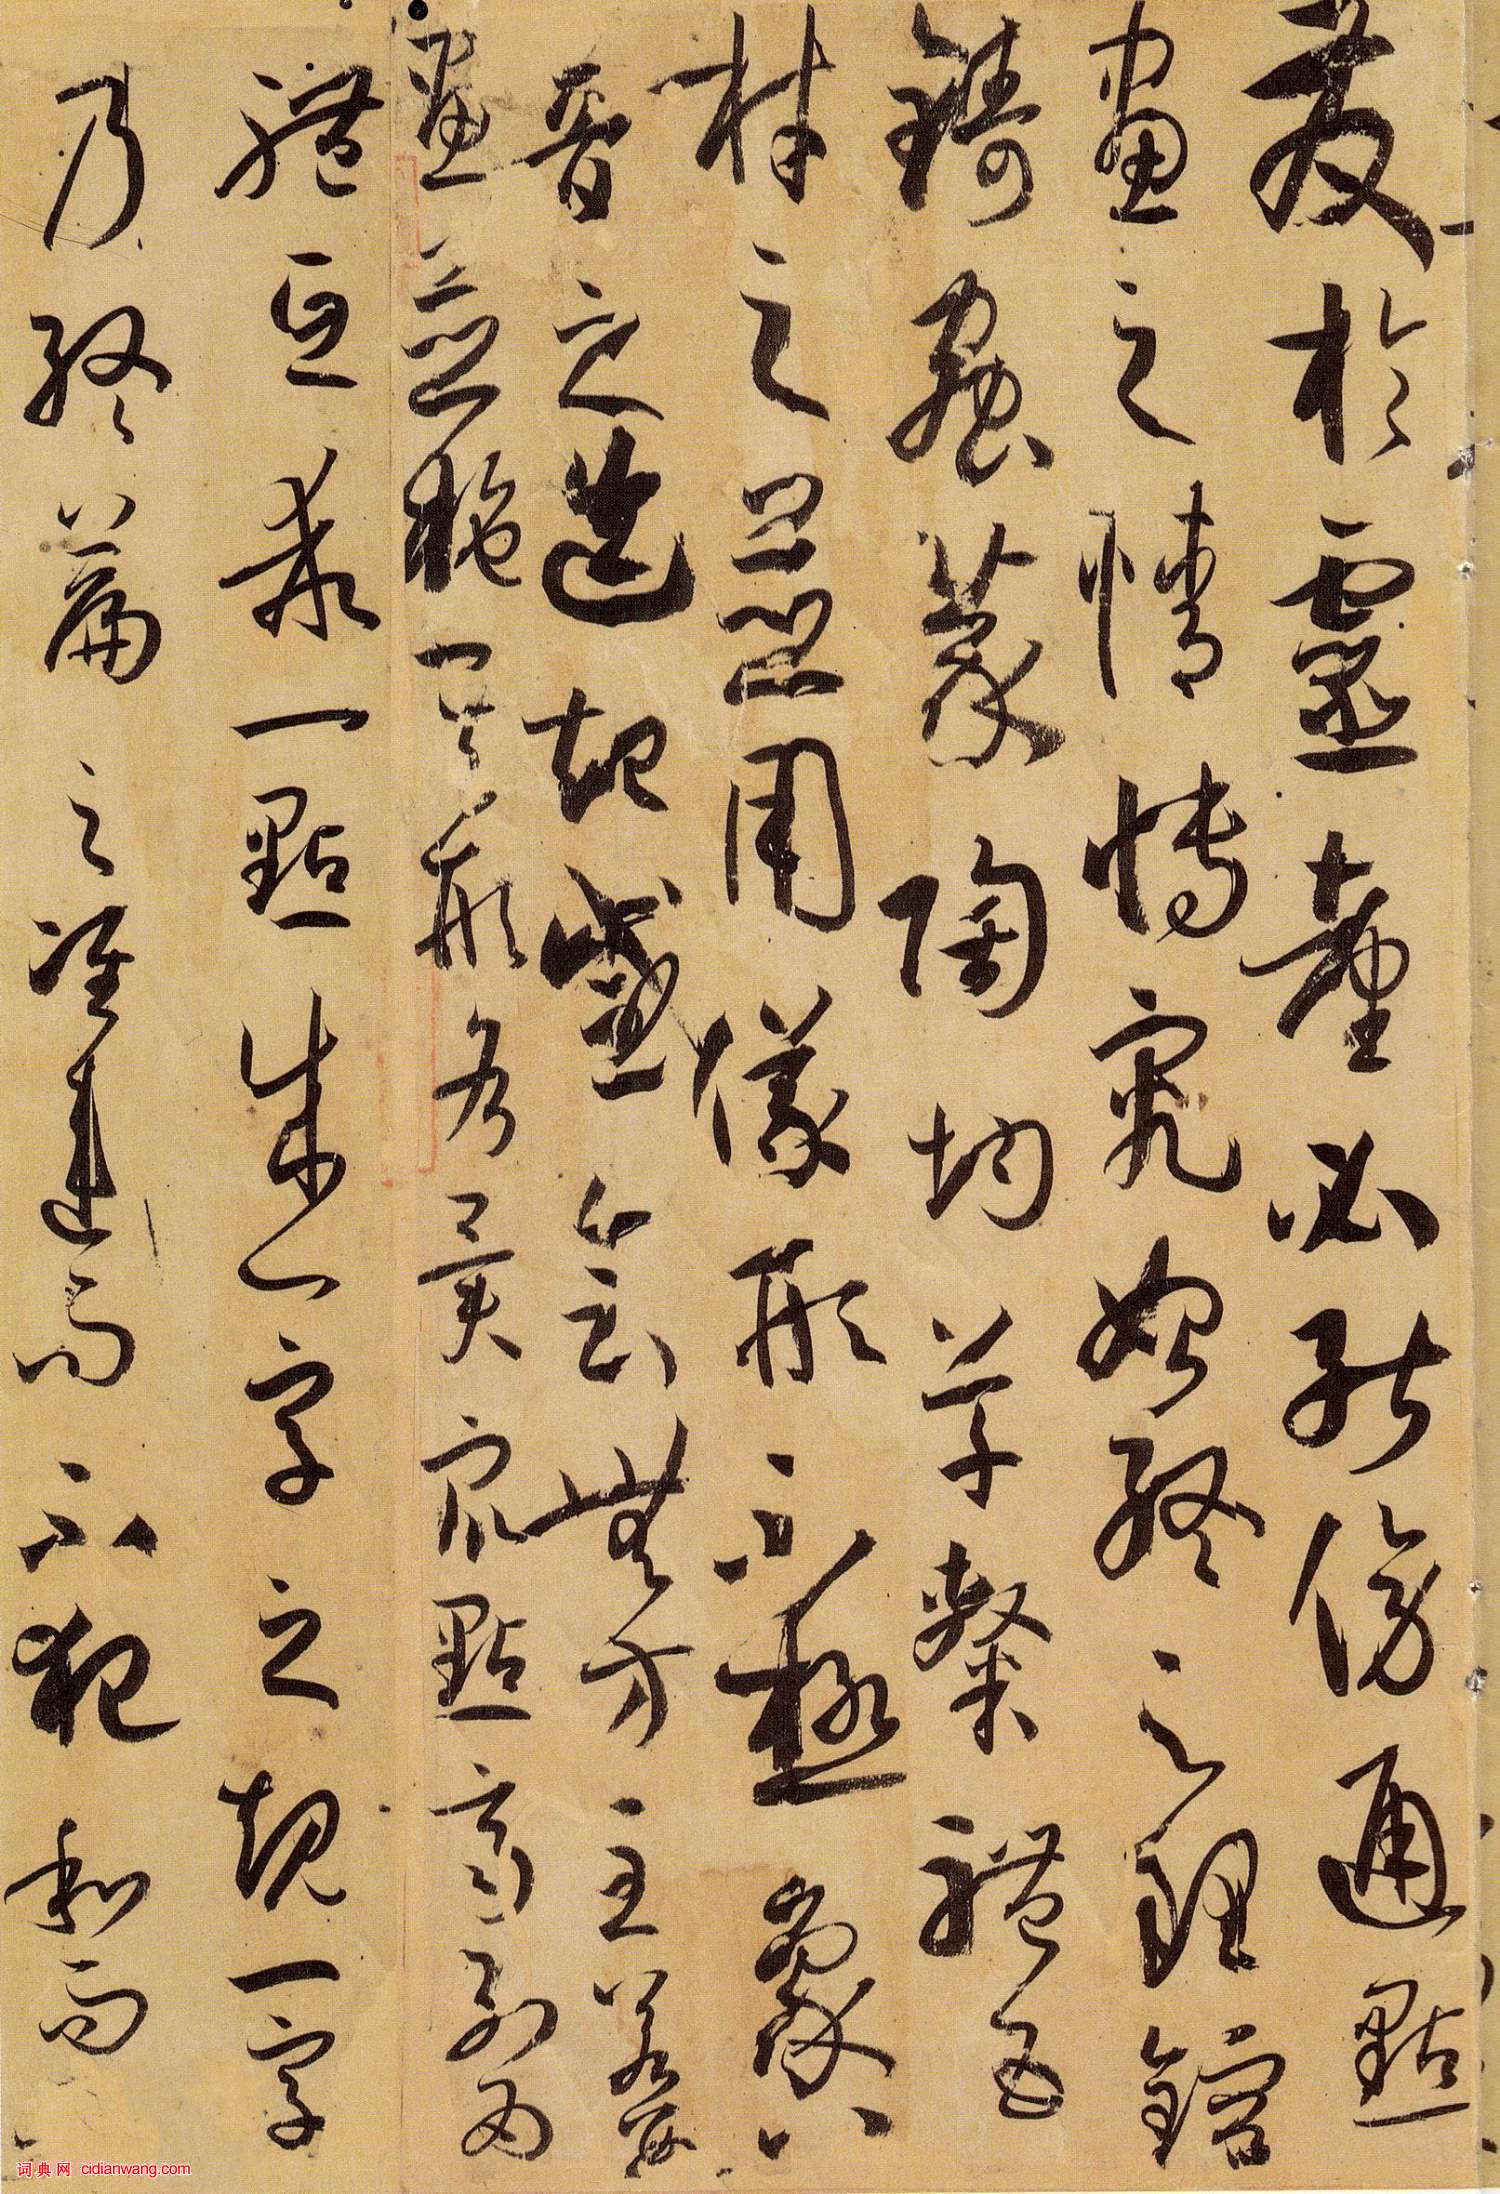 發於靈臺必能傍通點
畫之情博究始終之理鎔
鑄蟲篆陶均草隸體五
材之並用儀形不極象八
音之迭起感會無方至若數
畫並施其形各異衆點齊列為
體互乖一點成一字之規一字
乃終篇之準違而不犯和而
词典网 cidianwang.com